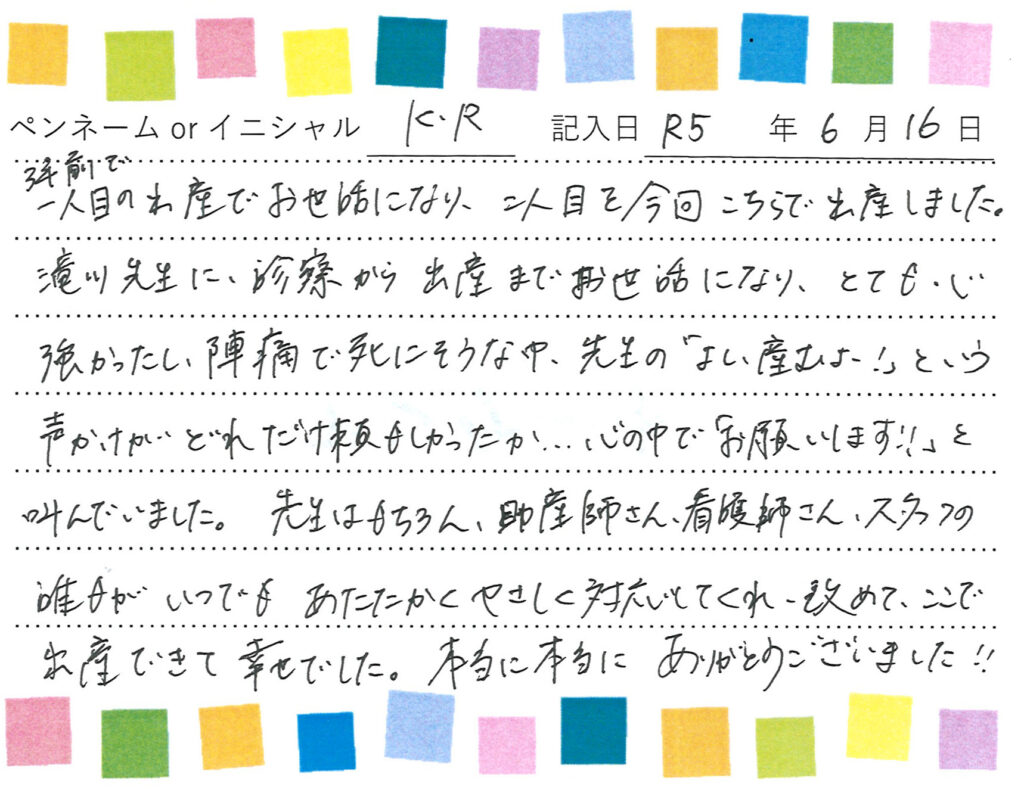 ペンネーム or イニシャル K・R 記入日 R5 年 6 月 16 日
3年前で
一人目の出産でお世話になり、二人目を今回こちらで出産しました。
滝川先生に、診察から出産までお世話になり、とても心
強かったし、陣痛で死にそうな中、先生の「よし、産むよー!」という
声かけがどれだけ頼もしかったか…心の中で「お願いします!!」と
叫んでいました。 先生はもちろん、助産師さん、看護師さん、スタッフの
誰もが いつでも あたたかくやさしく対応してくれ、改めて、ここで
出産できて幸せでした。本当に本当に ありがとうございました!!